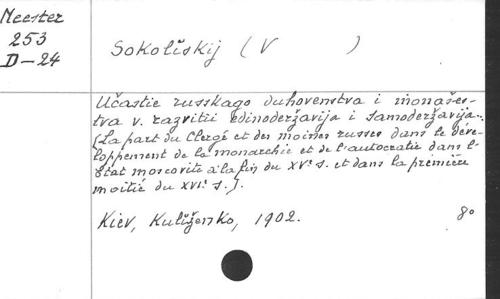 Meester
253
D-24
Sokolískij (V )
Učastie russkago duhovenstva i monašes-
tva v. razvitii edinoderžavija i samoderžavija..
(La part du Clergé et des moines russes dans le déve-
loppement de la monarchie et de l'autocratie dans l'-
État moscovite à la fin du XVe s. et dans la première
moitié du XVIe s.).
Kiev, Kulíženko, 1902. 8o